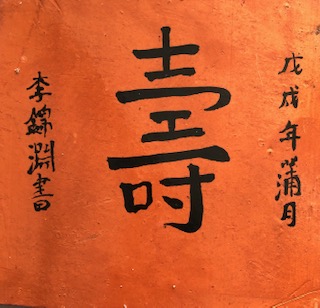 戊戌年蒲月
壽
李錦淵書